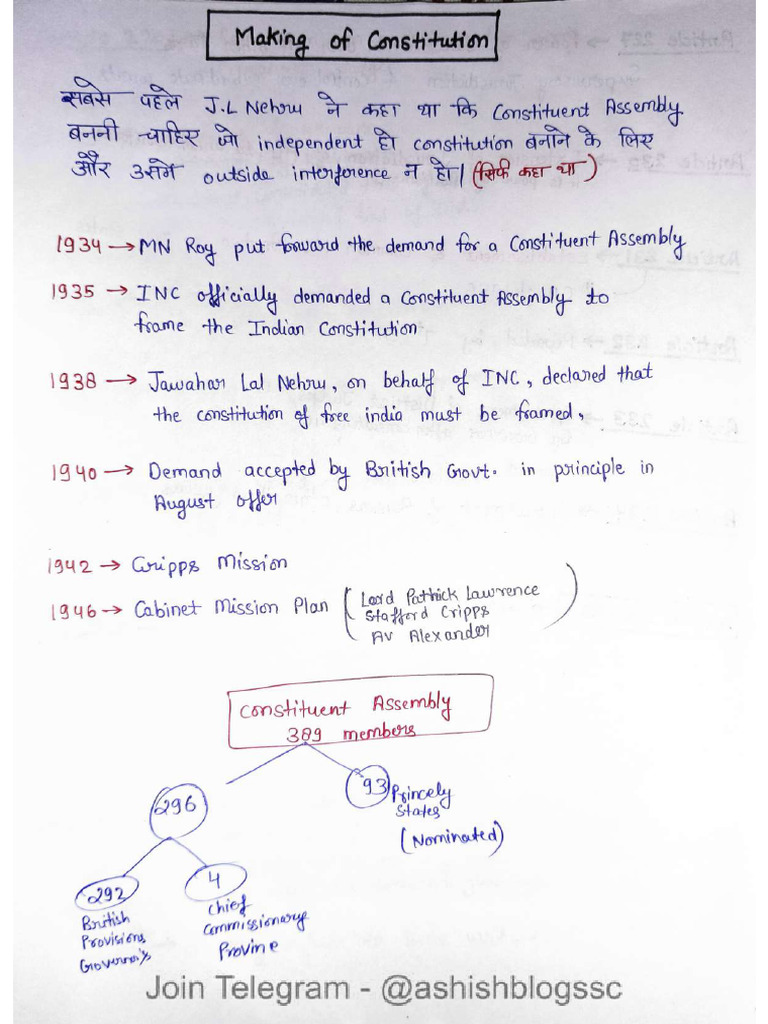 Making of Constitution
सबसे पहले J.L Nehru ने कहा था कि Constituent Assembly
बननी चाहिए जो independent हो constitution बनाने के लिए
और उसमे outside interference न हो। (सिर्फ कहा था)
1934 → MN Roy put forward the demand for a Constituent Assembly
1935 → INC officially demanded a Constituent Assembly to
frame the Indian Constitution
1938 → Jawahar Lal Nehru, on behalf of INC, declared that
the constitution of free india must be framed,
1940 → Demand accepted by British Govt. in principle in
August offer
1942 → Cripps Mission
1946 → Cabinet Mission Plan
(Lord Pathick Lawrence
Stafford Cripps
AV Alexander)
Constituent Assembly
389 members
296
93 Princely
States
(Nominated)
292
4
British
Provisions
Governor's
Chief
Commissionary
Provine
Join Telegram - @ashishblogssc